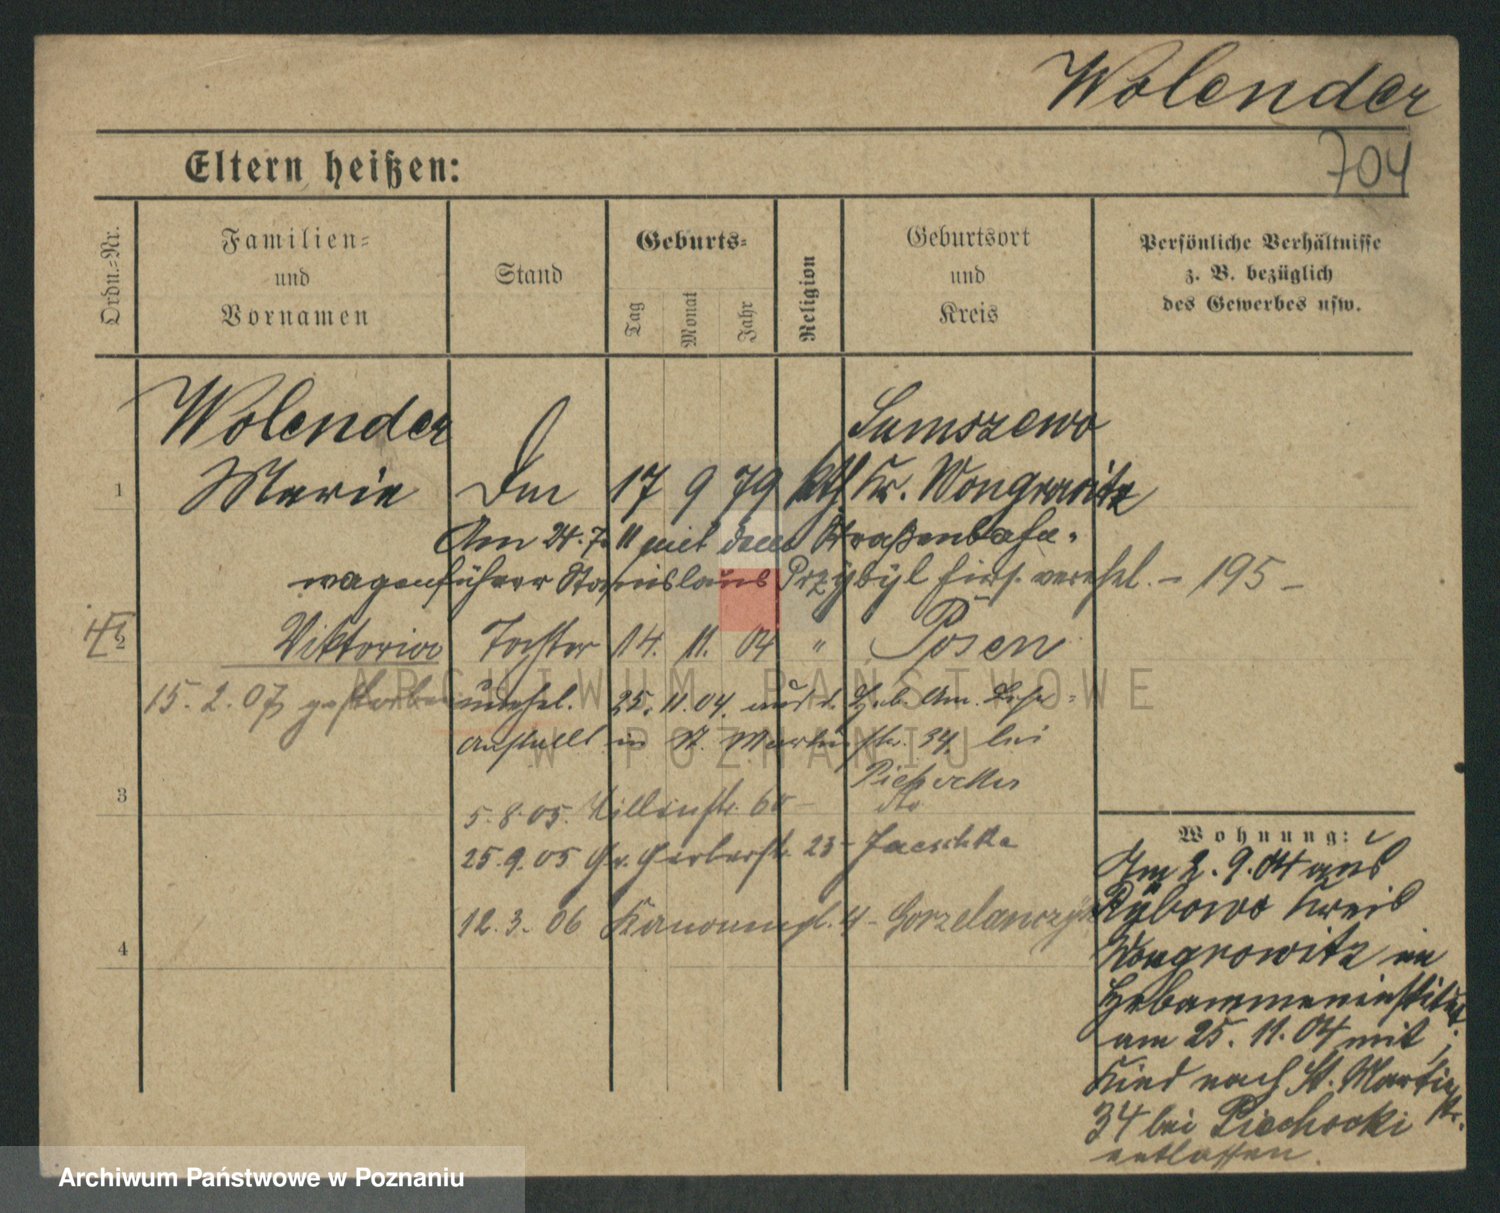 Wolender
704
Eltern heißen:
Ordn.-Nr.
Familien-
und
Vornamen
Stand
Geburts-
Tag
Monat
Jahr
Religion
Geburtsort
und
Kreis
Persönliche Verhältnisse
z. B. bezüglich
des Gewerbes usw.
Wolender
Marie
1
17 9 79 kth
Sumszewo
Kr. Wongrowitz
Am 24. 7. 11 mit dem Straßenbahn-
wagenführer Stanislaus Przybyl hier verehel. - 195 -
2
Viktoria Tochter 14. 11. 04 " Posen
15. 2. 07 gestorben
unehel. 25. 11. 04. aus d. Heb. Am.
anstalt in St. Martinstr. 34. bei
Piechocki
3
5. 8. 05. 60 - dto
25. 9. 05 Gr. Gerberstr. 23 - Jaeschke
12. 3. 06 Kanonenpl. 4 - Gorzelanczyk
4
Wohnung:
Am 2. 9. 04 aus
Rybowo Kreis
Wongrowitz im
Hebammeninstitut
am 25. 11. 04 mit
Kind nach St. Martinstr.
34 bei Piechocki
entlassen.
ARCHIWUM PAŃSTWOWE
W POZNANIU
Archiwum Państwowe w Poznaniu